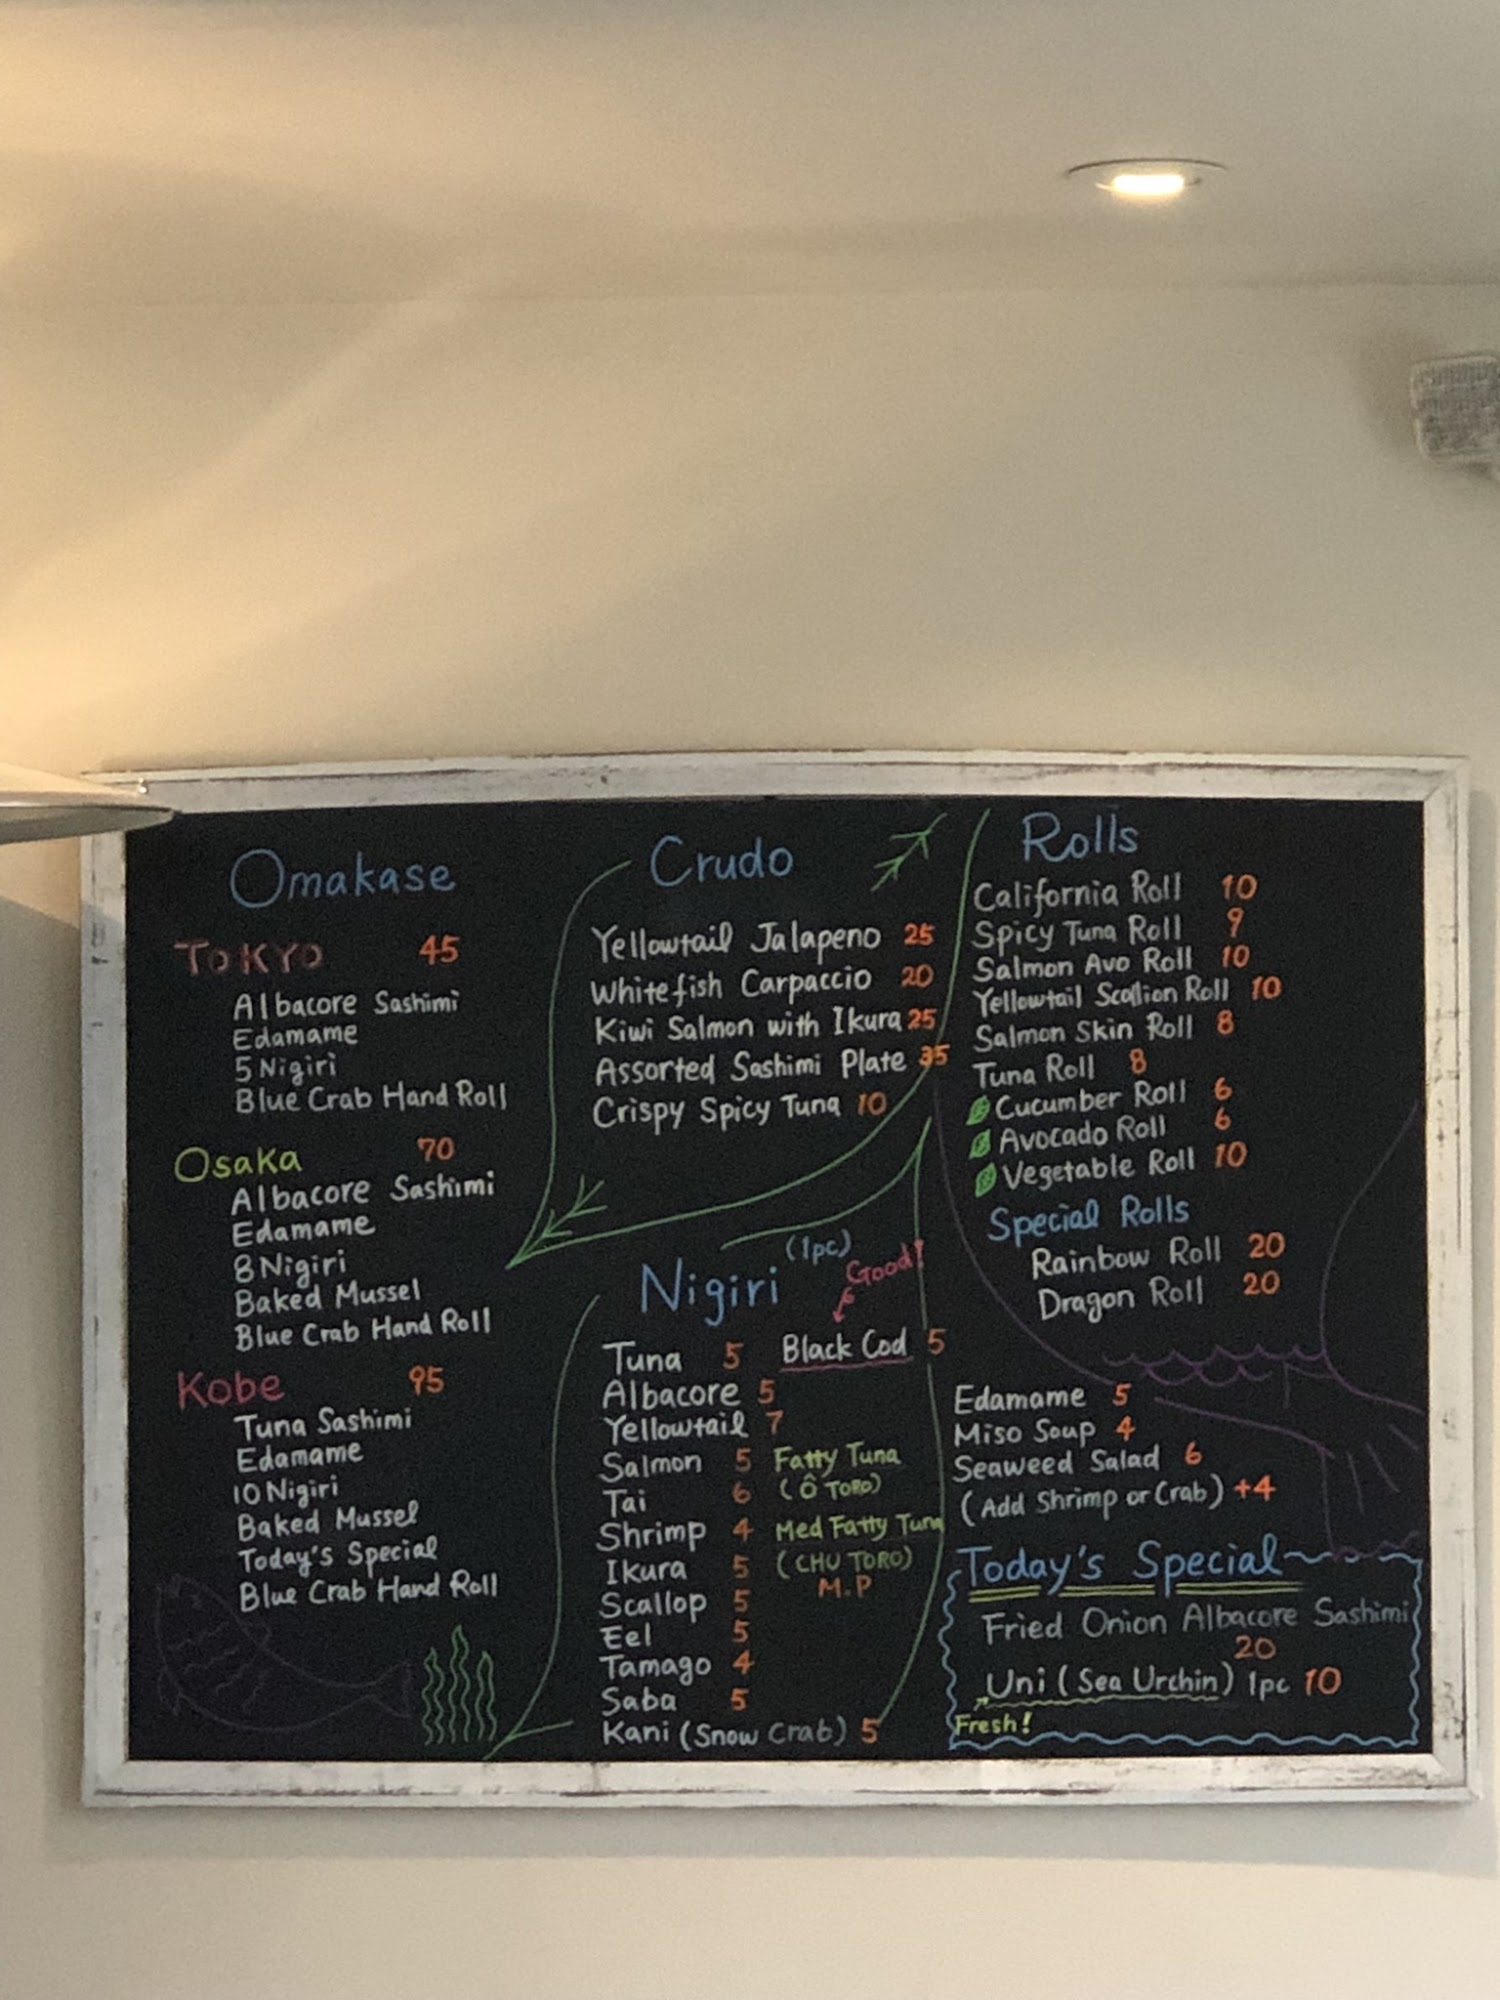 Omakase
TOKYO 45
Albacore Sashimi
Edamame
5 Nigiri
Blue Crab Hand Roll
Osaka 70
Albacore Sashimi
Edamame
8 Nigiri
Baked Mussel
Blue Crab Hand Roll
Kobe 95
Tuna Sashimi
Edamame
10 Nigiri
Baked Mussel
Today's Special
Blue Crab Hand Roll
Crudo
Yellowtail Jalapeno 25
Whitefish Carpaccio 20
Kiwi Salmon with Ikura 25
Assorted Sashimi Plate 35
Crispy Spicy Tuna 10
Nigiri (1pc)
Good!
Tuna 5
Albacore 5
Yellowtail 7
Salmon 5
Tai 6
Shrimp 4
Ikura 5
Scallop 5
Eel 5
Tamago 4
Saba 5
Kani (Snow Crab) 5
Black Cod 5
Fatty Tuna
(Ō TORO)
Med Fatty Tuna
(CHU TORO)
M.P
Rolls
California Roll 10
Spicy Tuna Roll 9
Salmon Avo Roll 10
Yellowtail Scallion Roll 10
Salmon Skin Roll 8
Tuna Roll 8
Cucumber Roll 6
Avocado Roll 6
Vegetable Roll 10
Special Rolls
Rainbow Roll 20
Dragon Roll 20
Edamame 5
Miso Soup 4
Seaweed Salad 6
(Add Shrimp or Crab) +4
Today's Special
Fried Onion Albacore Sashimi
20
Uni (Sea Urchin) 1pc 10
Fresh!